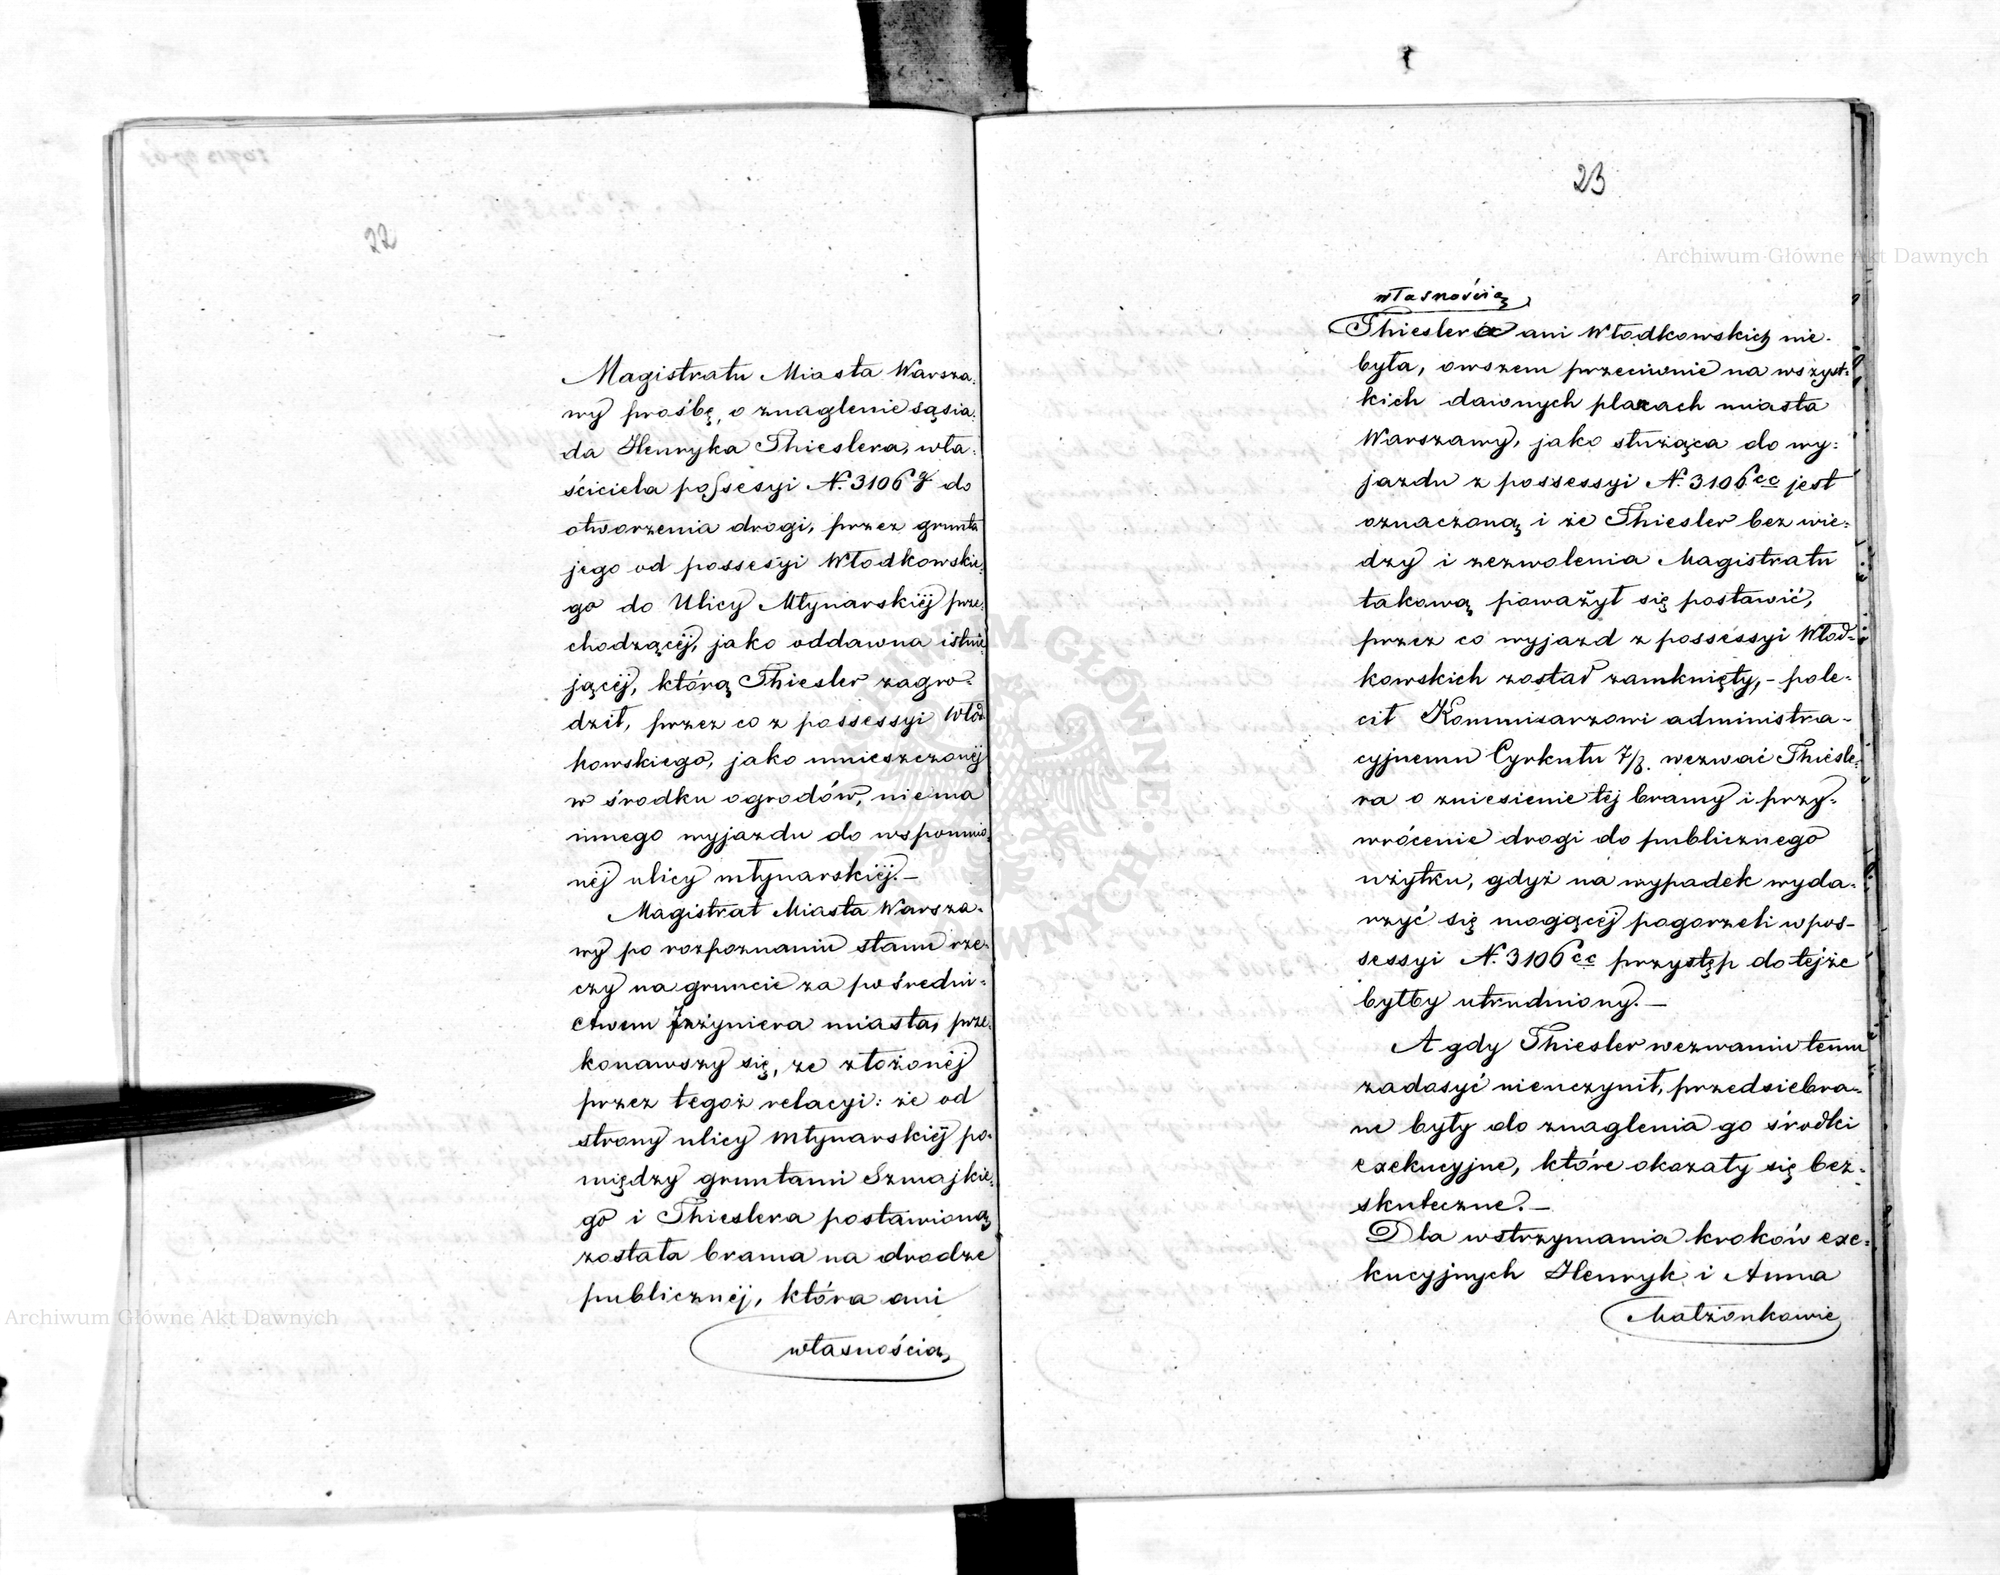 22
Magistratu Miasta Warsza-
wy prośbę, o znaglenie sąsia-
da Henryka Thieslera, wła-
ściciela possesyi N. 3106 g do
otworzenia drogi, przez grunta
jego od possesyi Włodkowskie-
go do Ulicy Młynarskiéj prze-
chodzącéj, jako oddawna istnie-
jącéj, którą Thiesler zagro-
dził, przez co z possessyi Włod
kowskiego, jako umieszczonéj
w środku ogrodów, niema
innego wyjazdu do wspomnio-
néj ulicy młynarskiéj. –
Magistrat Miasta Warsza-
wy po rozpoznaniu stanu rze-
czy na gruncie za pośredni-
ctwem Inżyniera miasta, prze-
konawszy się, ze złożonéj
przez tegoż relacyi: że od
strony ulicy Młynarskiéj po-
między gruntami Szmajkie-
go i Thieslera postawioną
została brama na drodze
publicznéj, która ani
własnością
23
własnością
Thieslera ani Włodkowskich nie-
była, owszem przeciwnie na wszyst-
kich dawnych placach miasta
Warszawy, jako służąca do wy-
jazdu z possessyi N. 3106 cc jest
oznaczoną i że Thiesler bez wie-
dzy i zezwolenia Magistratu
takową poważył się postawić,
przez co wyjazd z possessyi Włod-
kowskich został zamknięty, – pole-
cił Kommisarzowi administra-
cyjnemu Cyrkułu 7/8. wezwać Thiesle-
ra o zniesienie téj bramy i przy-
wrócenie drogi do publicznego
użytku, gdyż na wypadek wyda-
rzyć się mogącéj pogorzeli w pos-
sessyi N. 3106 cc przystęp do tejże
byłby utrudniony. –
A gdy Thiesler wezwaniu temu
zadosyć nieuczynił, przedsiebra-
ne były do znaglenia go środki
exekucyjne, które okazały się bez-
skuteczne. –
Dla wstrzymania kroków exe-
kucyjnych Henryk i Anna
Małżonkowie
Archiwum Główne Akt Dawnych
Archiwum Główne Akt Dawnych